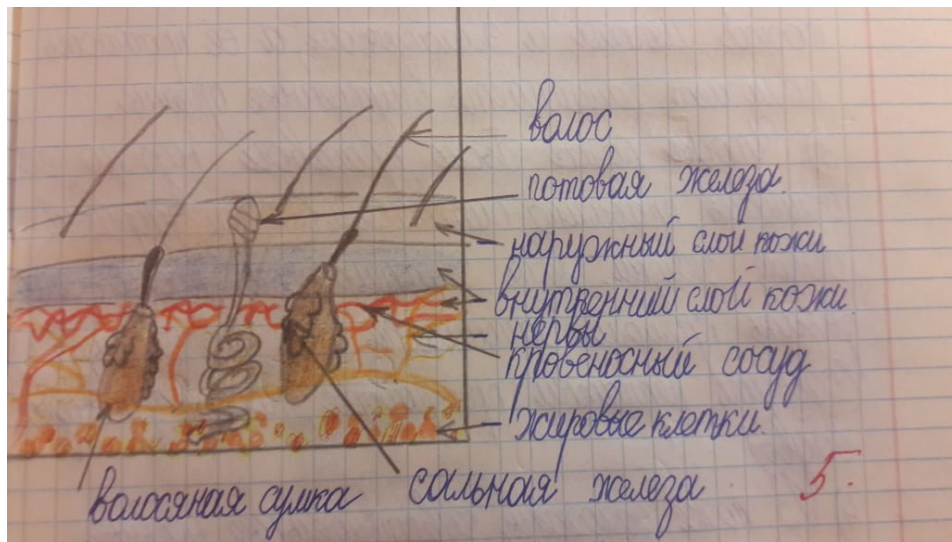 волос
потовая железа.
наружный слой кожи
внутренний слой кожи.
нервы
кровеносный сосуд
жировые клетки.
волосяная сумка сальная железа
5.